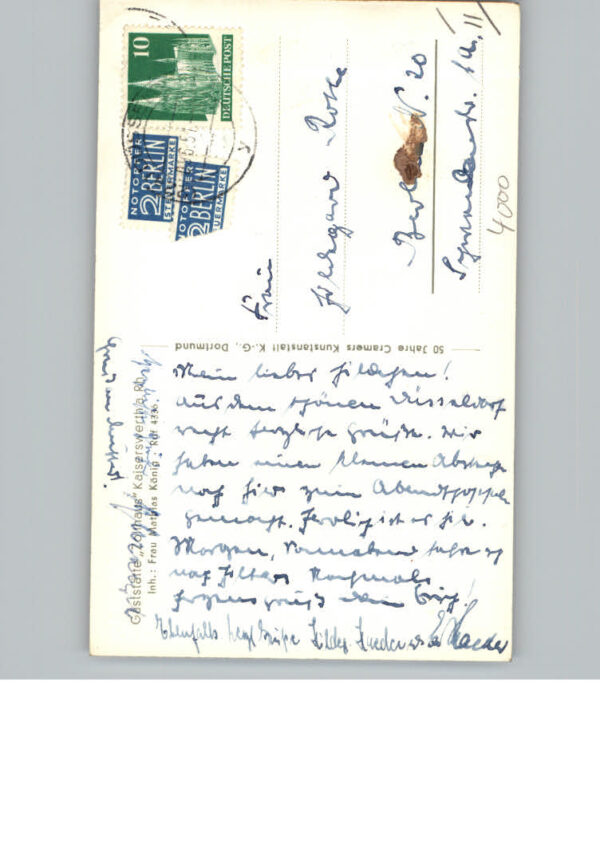 10
DEUTSCHE POST
NOTOPFER
2 BERLIN
STEUERMARKE
NOTOPFER
2 BERLIN
STEUERMARKE
Frau
Hildegard
Berlin N. 20
11
4000
50 Jahre Cramers Kunstanstalt K.-G., Dortmund
Gaststätte „Zollhaus" Kaiserswerth a. Rh.
Inh.: Frau Mathias König · Ruf 4336
Mein liebes Hildchen!
Aus dem schönen Düsseldorf
herzliche Grüße. Wir
haben einen kleinen Abstecher
nach hier zum Abendschoppen
gemacht. Herrlich ist es hier.
Morgen, Sonnabend fahre ich
nach Hilden. Nochmals
Herzensgruß Dein
Ebenfalls herzl. Grüße